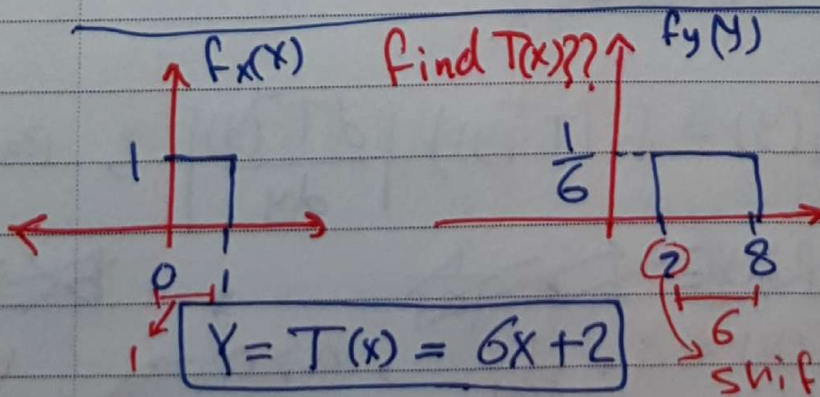 fx(x) find T(x)?? fy(y)
1 1/6
0 1 2 8
1 6
Y = T(x) = 6x+2
shif